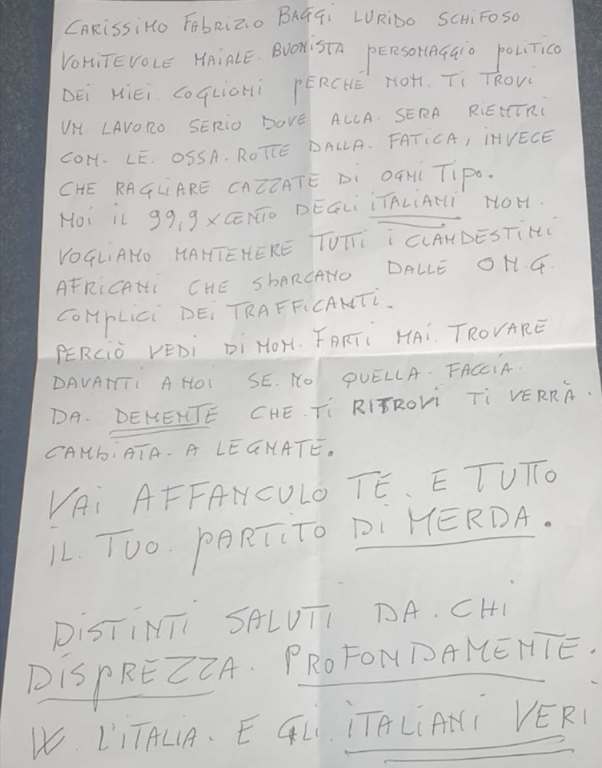 CARISSIMO FABRIZIO BAGGI LURIDO SCHIFOSO
VOMITEVOLE MAIALE. BUONISTA PERSONAGGIO POLITICO
DEI MIEI COGLIONI PERCHÉ NON. TI TROVI
UN LAVORO SERIO DOVE ALLA. SERA RIENTRI
CON. LE. OSSA. ROTTE DALLA. FATICA, INVECE
CHE RAGLIARE CAZZATE DI OGNI TIPO.
NOI IL 99,9 x CENTO DEGLI ITALIANI NON.
VOGLIAMO MANTENERE TUTTI I CLANDESTINI
AFRICANI CHE SBARCANO DALLE ONG.
COMPLICI DEI TRAFFICANTI.
PERCIÒ VEDI DI NON. FARTI MAI. TROVARE
DAVANTI A NOI SE. NO QUELLA. FACCIA.
DA. DEMENTE CHE. TI RITROVI TI VERRÀ.
CAMBIATA. A LEGNATE.
VAI AFFANCULO TE. E TUTTO
IL. TUO. PARTITO DI MERDA.
DISTINTI SALUTI DA. CHI
DISPREZZA. PROFONDAMENTE.
W. L'ITALIA. E GLI. ITALIANI VERI